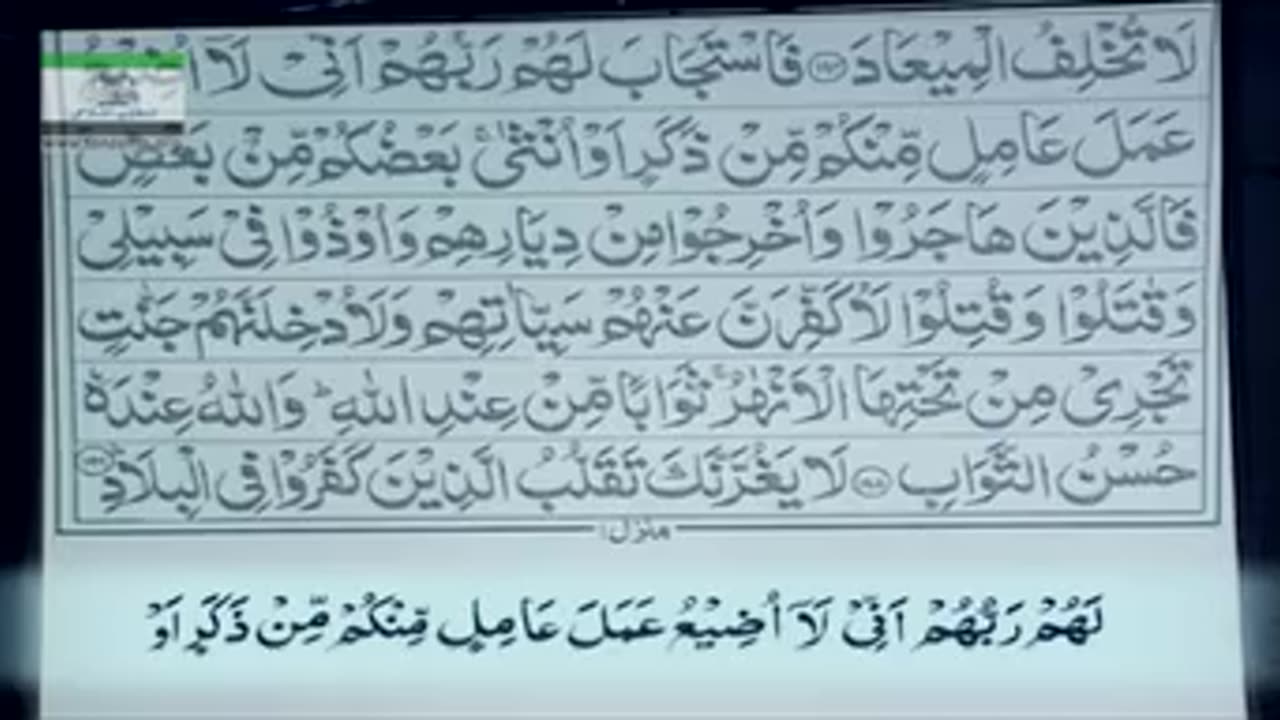 لَا تُخْلِفُ الْمِيْعَادَ ﴿۱۹۴﴾ فَاسْتَجَابَ لَهُمْ رَبُّهُمْ اَنِّيْ لَآ
عَمَلَ عَامِلٍ مِّنْكُمْ مِّنْ ذَكَرٍ اَوْ اُنْثٰى ۚ بَعْضُكُمْ مِّنْ بَعْضٍ
فَالَّذِيْنَ هَاجَرُوْا وَاُخْرِجُوْا مِنْ دِيَارِهِمْ وَاُوْذُوْا فِيْ سَبِيْلِيْ
وَقٰتَلُوْا وَقُتِلُوْا لَاُكَفِّرَنَّ عَنْهُمْ سَيِّاٰتِهِمْ وَلَاُدْخِلَنَّهُمْ جَنّٰتٍ
تَجْرِيْ مِنْ تَحْتِهَا الْاَنْهٰرُ ۚ ثَوَابًا مِّنْ عِنْدِ اللّٰهِ ؕ وَاللّٰهُ عِنْدَهٗ
حُسْنُ الثَّوَابِ ﴿۱۹۵﴾ لَا يَغُرَّنَّكَ تَقَلُّبُ الَّذِيْنَ كَفَرُوْا فِي الْبِلَادِ ﴿۱۹۶﴾
منزل ۱
لَهُمْ رَبُّهُمْ اَنِّيْ لَآ اُضِيْعُ عَمَلَ عَامِلٍ مِّنْكُمْ مِّنْ ذَكَرٍ اَوْ